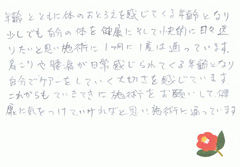 年齢とともに体のおとろえを感じてくる年齢となり
少しでも自分の体を健康にそして快適に日々送
りたいと思い施術に1ヶ月に1度は通っています。
肩こりや腰痛が日常感じられてくる年齢となり
自分でケアーをしていく大切さを感じています
これからもていきてきに施術をお願いして健
康に気をつけていければなと思い施術に通っています